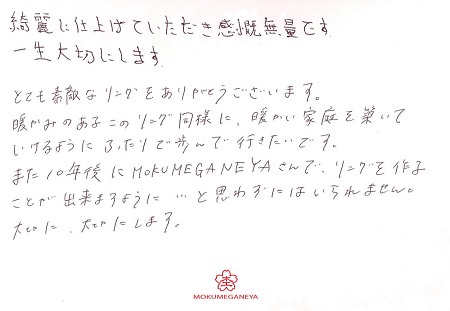 綺麗に仕上げていただき感慨無量です
一生大切にします
とても素敵なリングをありがとうございます。
暖かみのあるこのリング同様に、暖かい家庭を築いて
いけるように ふたりで歩んで行きたいです。
また10年後にMOKUMEGANEYAさんで、リングを作る
ことが出来ますように…と思わずにはいられません。
大切に、大切にします。
MOKUMEGANEYA